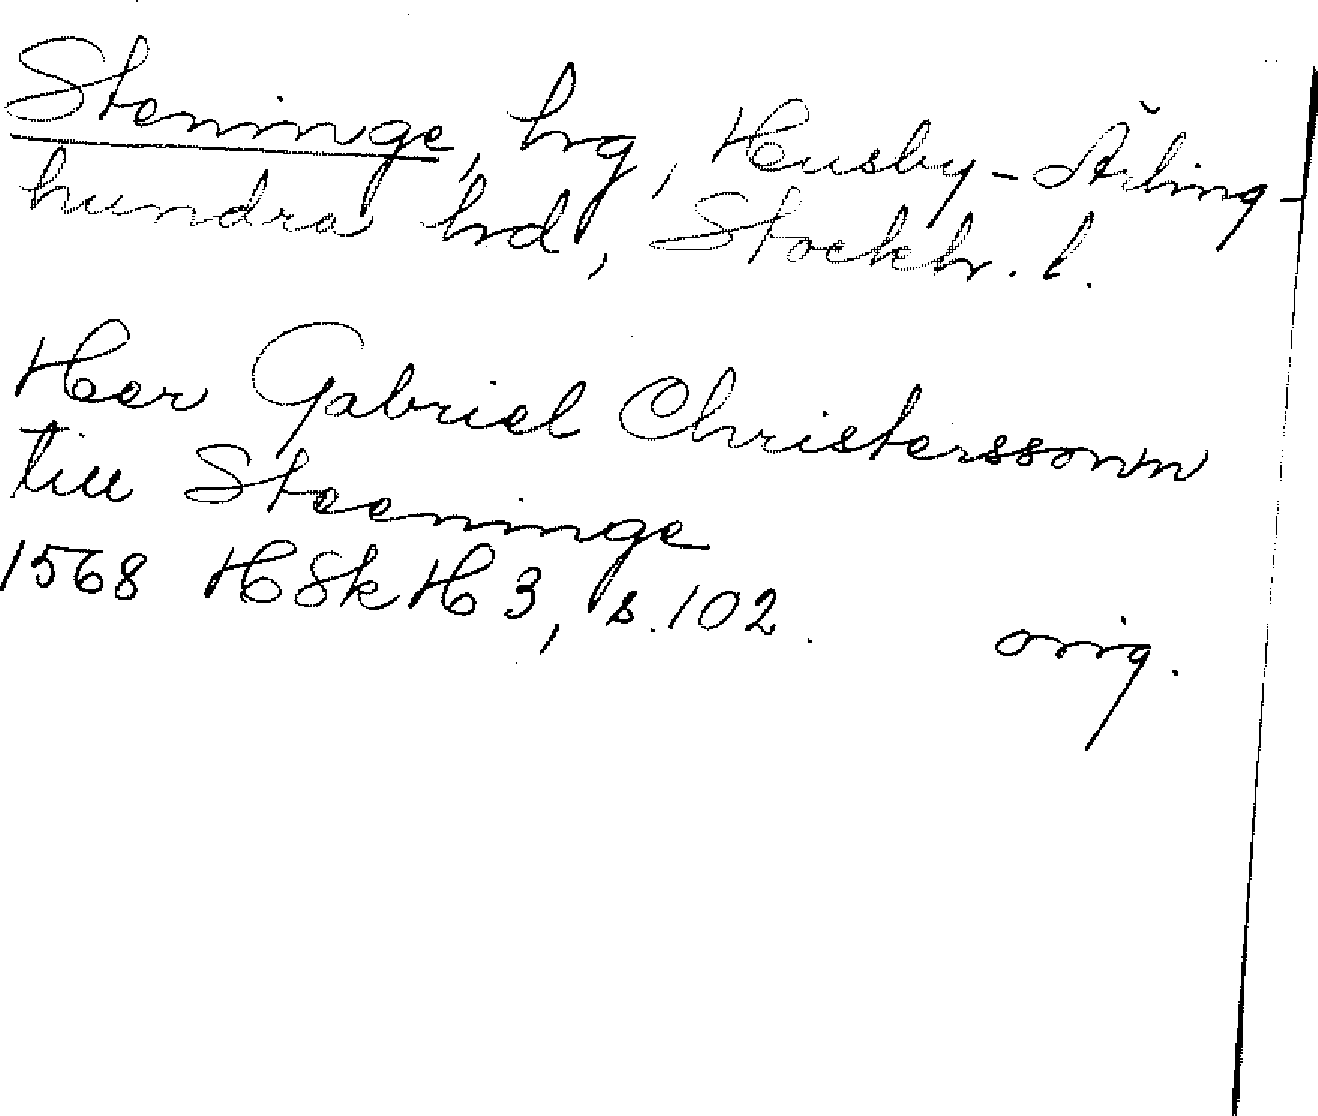 Steninge, hrg, Husby-Ärling-
hundra hrd, Stockh. l.
Herr Gabriel Christerssonn
till Steeninge
1568 HSkH 3, s. 102.
orig.